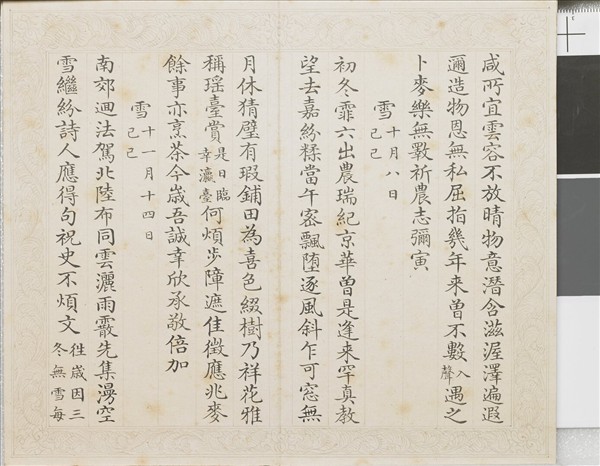 咸所宜雲容不放晴物意潛含滋渥澤遍遐
邇造物恩無私屈指幾年来曾不數入聲遇之
卜麥樂無斁祈農志彌寅
雪十月八日己巳
初冬霏六出農瑞紀京華曾是逢来罕真教
望去嘉紛糅當午密飄堕逐風斜乍可窓無
月休猜璧有瑕鋪田為喜色綴樹乃祥花雅
稱瑶臺賞是日臨幸瀛臺何煩步障遮佳徵應兆麥
餘事亦烹茶今歳吾誠幸欣承敬倍加
雪十一月十四日己巳
南郊迴法駕北陸布同雲灑雨霰先集漫空
雪繼紛詩人應得句祝史不煩文徃歳因三冬無雪每